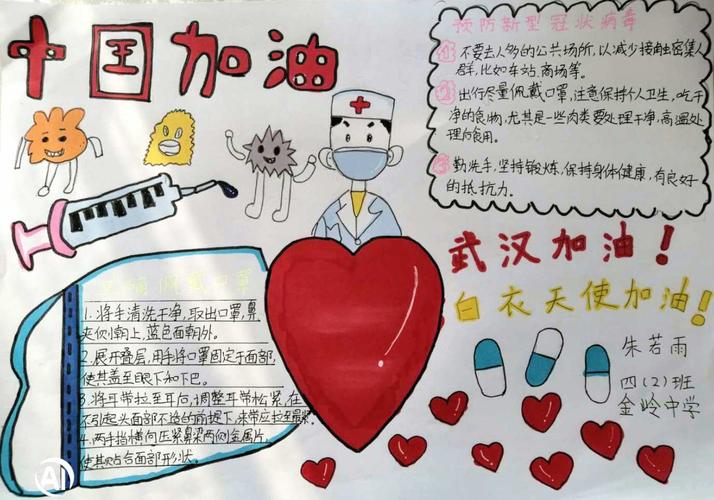 中国加油
预防新型冠状病毒
1 不要去人多的公共场所,以减少接触密集人
群,比如车站,商场等。
2 出行尽量佩戴口罩,注意保持个人卫生,吃干
净的食物,尤其是一些肉类要处理干净,高温处
理后食用。
3 勤洗手,坚持锻炼,保持身体健康,有良好
的抵抗力。
武汉加油!
白衣天使加油!
朱若雨
四(2)班
金岭中学
佩戴口罩
1.将手清洗干净,取出口罩,鼻
夹侧朝上,蓝色面朝外。
2.展开叠层,用手将口罩固定于面部,
使其盖至眼下和下巴。
3.将耳带拉至耳后,调整耳带松紧,在
不引起头面部不适的前提下,束带应拉至最紧。
4.两手指横向压紧鼻梁两侧金属片,
使其贴合面部形状。
AI